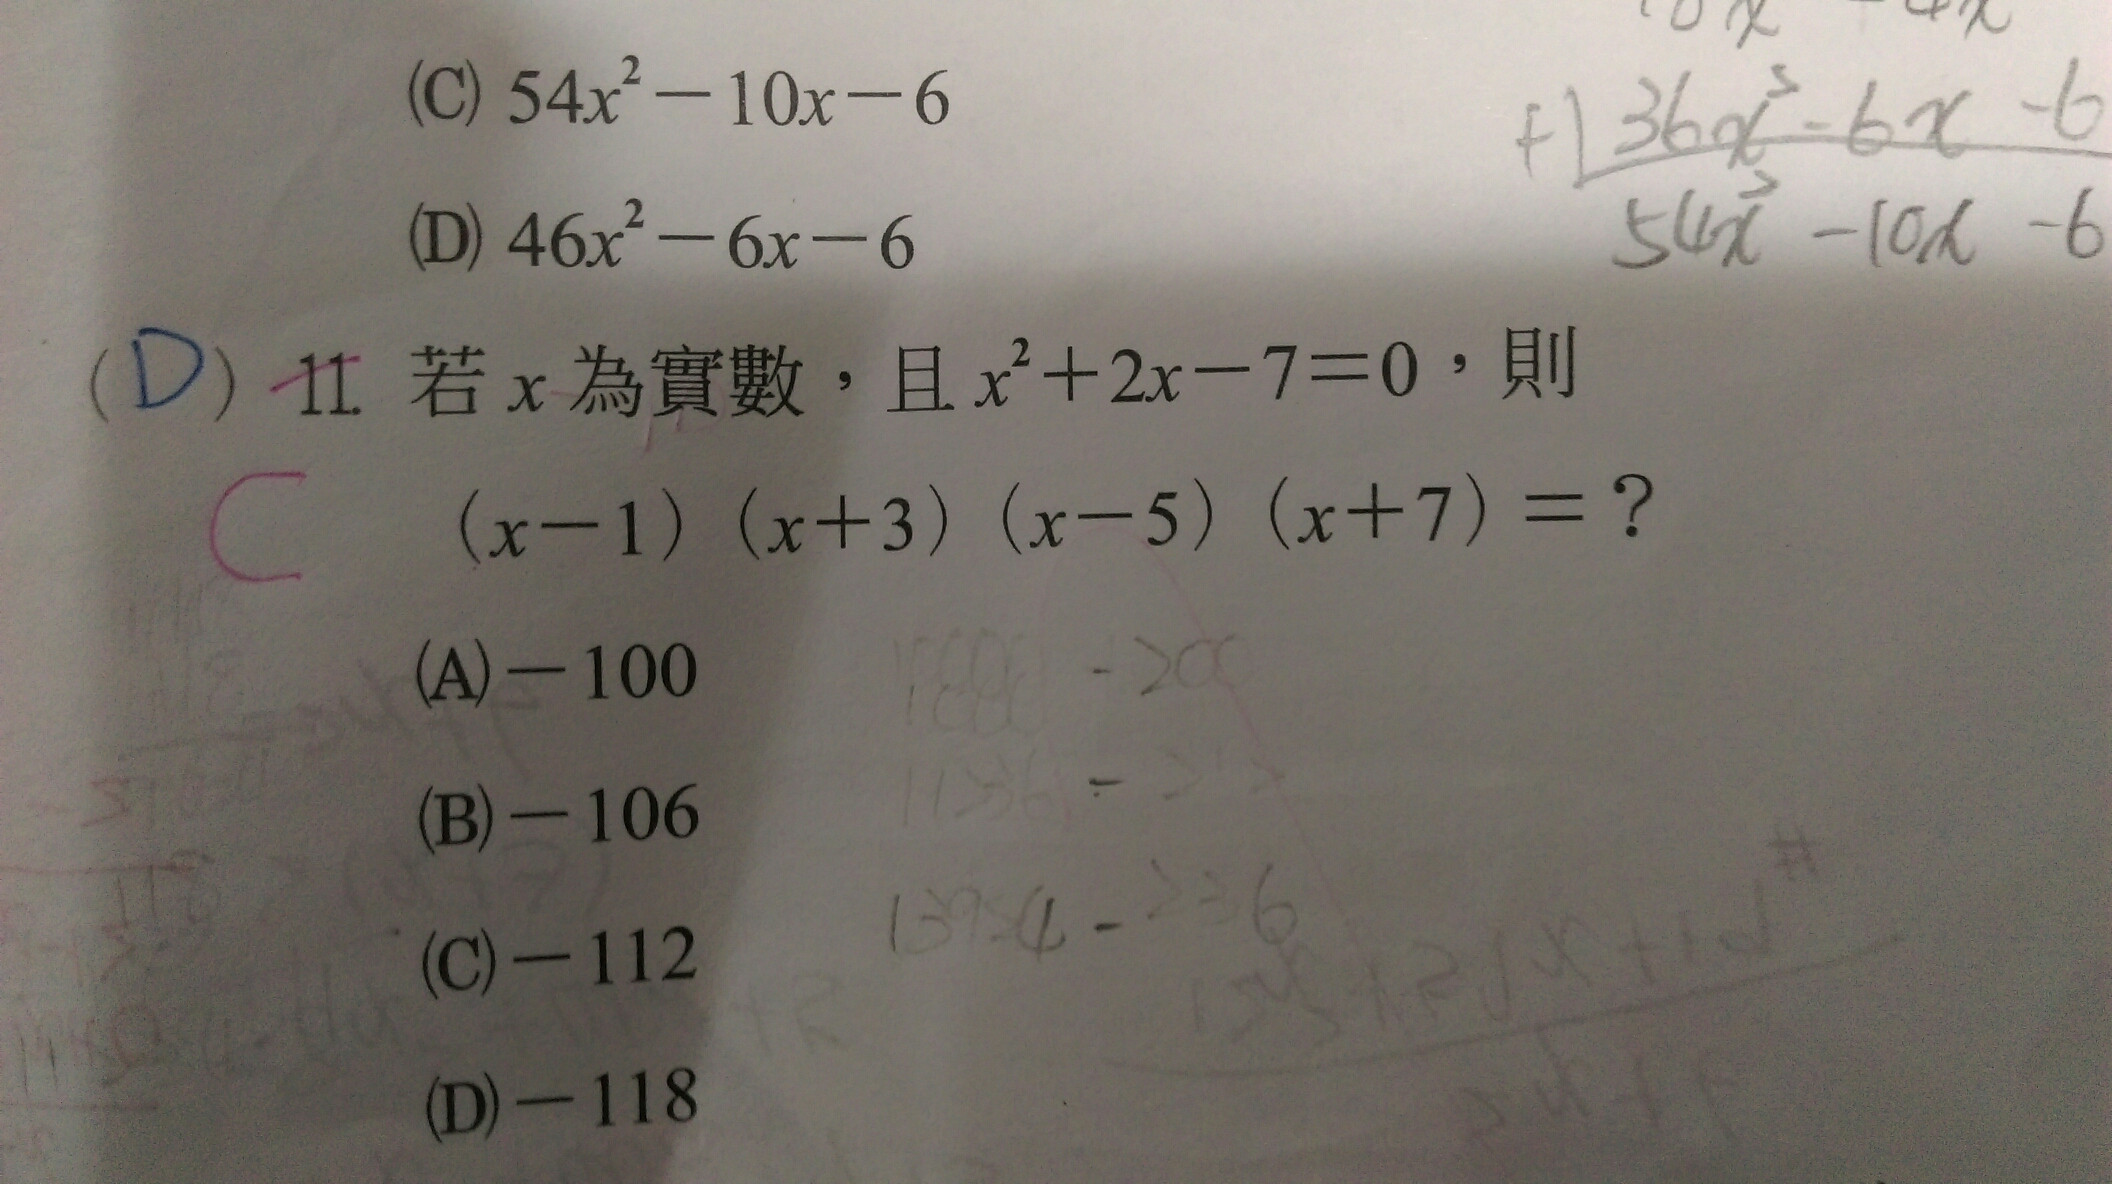 (C) 54x²－10x－6
+) 36x² -6x -6
(D) 46x²－6x－6
54x² -10x -6
(D) 11. 若 x 為實數，且 x²＋2x－7＝0，則
C (x－1)(x＋3)(x－5)(x＋7)＝？
(A)－100
(B)－106
(C)－112
(D)－118